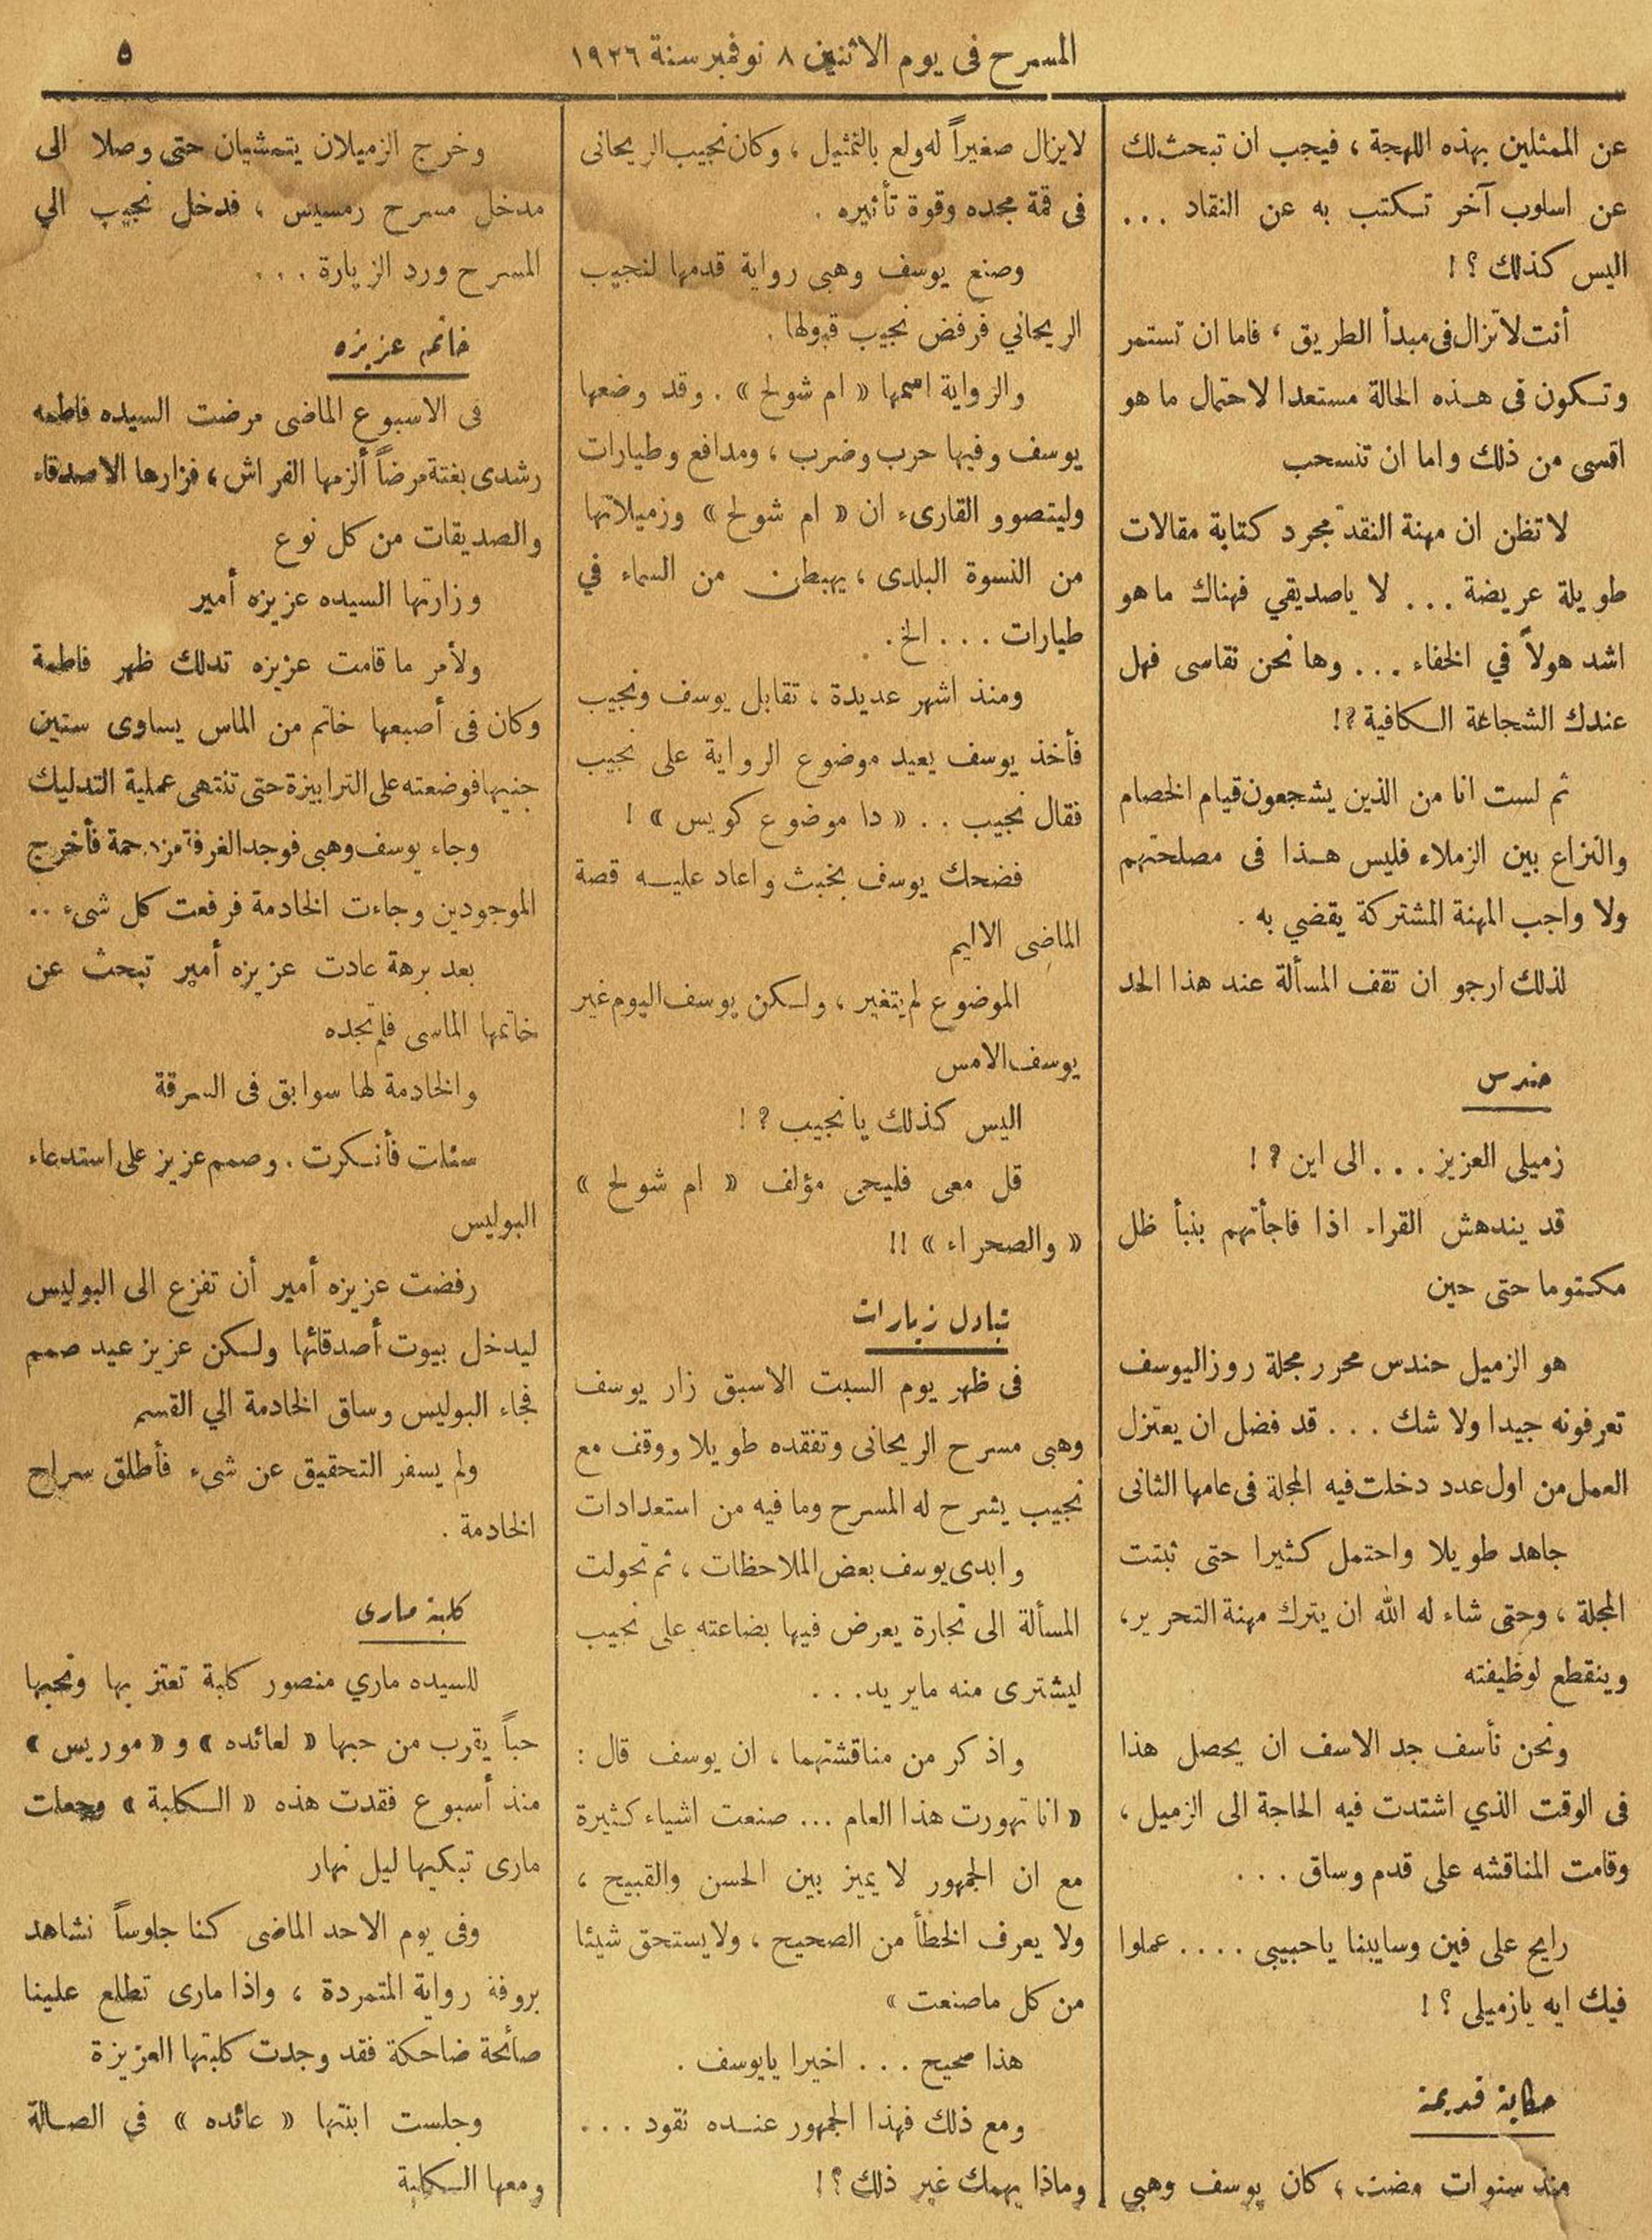 المسرح فى يوم الاثنين ٨ نوفمبر سنة ١٩٢٦
٥
عن الممثلين بهذه اللهجة ، فيجب ان تبحث لك
عن اسلوب آخر تكتب به عن النقاد ...
اليس كذلك ؟ !
أنت لا تزال فى مبدأ الطريق ، فاما ان تستمر
وتكون فى هذه الحالة مستعدا لاحتمال ما هو
اقسى من ذلك واما ان تنسحب
لا تظن ان مهنة النقد مجرد كتابة مقالات
طويلة عريضة ... لا ياصديقي فهناك ما هو
اشد هولاً في الخفاء ... وها نحن نقاسى فهل
عندك الشجاعة الكافية ؟!
ثم لست انا من الذين يشجعون قيام الخصام
والنزاع بين الزملاء فليس هذا فى مصلحتهم
ولا واجب المهنة المشتركة يقضي به .
لذلك ارجو ان تقف المسألة عند هذا الحد
حندس
زميلى العزيز ... الى اين ؟ !
قد يندهش القراء اذا فاجأتهم بنبأ ظل
مكتوما حتى حين
هو الزميل حندس محرر مجلة روز اليوسف
تعرفونه جيدا ولا شك ... قد فضل ان يعتزل
العمل من اول عدد دخلت فيه المجلة فى عامها الثانى
جاهد طويلا واحتمل كثيرا حتى ثبتت
المجلة ، وحتى شاء له الله ان يترك مهنة التحرير ،
وينقطع لوظيفته
ونحن نأسف جد الاسف ان يحصل هذا
فى الوقت الذي اشتدت فيه الحاجة الى الزميل ،
وقامت المناقشه على قدم وساق ...
رايح على فين وسايبنا ياحبيبى .... عملوا
فيك ايه يازميلى ؟ !
حكاية قديمة
منذ سنوات مضت ، كان يوسف وهبي
لايزال صغيراً له ولع بالتمثيل ، وكان نجيب الريحانى
فى قمة مجده وقوة تأثيره .
وصنع يوسف وهبى رواية قدمها لنجيب
الريحاني فرفض نجيب قبولها .
والرواية اسمها « ام شولح » . وقد وضعها
يوسف وفيها حرب وضرب ، ومدافع وطيارات
وليتصور القارىء ان « ام شولح » وزميلاتها
من النسوة البلدى ، يهبطن من السماء في
طيارات ... الخ .
ومنذ اشهر عديدة ، تقابل يوسف ونجيب
فأخذ يوسف يعيد موضوع الرواية على نجيب
فقال نجيب .. « دا موضوع كويس » !
فضحك يوسف بخبث واعاد عليه قصة
الماضى الاليم
الموضوع لم يتغير ، ولكن يوسف اليوم غير
يوسف الامس
اليس كذلك يانجيب ؟ !
قل معى فليحى مؤلف « ام شولح »
« والصحراء » !!
تبادل زيارات
فى ظهر يوم السبت الاسبق زار يوسف
وهبى مسرح الريحانى وتفقده طويلا ووقف مع
نجيب يشرح له المسرح وما فيه من استعدادات
وابدى يوسف بعض الملاحظات ، ثم تحولت
المسألة الى تجارة يعرض فيها بضاعته على نجيب
ليشترى منه مايريد ...
واذكر من مناقشتهما ، ان يوسف قال :
« انا تهورت هذا العام ... صنعت اشياء كثيرة
مع ان الجمهور لا يميز بين الحسن والقبيح ،
ولا يعرف الخطأ من الصحيح ، ولا يستحق شيئا
من كل ماصنعت »
هذا صحيح ... اخيرا يايوسف .
ومع ذلك فهذا الجمهور عنده نقود ...
وماذا يهمك غير ذلك ؟ !
وخرج الزميلان يتمشيان حتى وصلا الى
مدخل مسرح رمسيس ، فدخل نجيب الي
المسرح ورد الزيارة ...
خاتم عزيزه
فى الاسبوع الماضى مرضت السيده فاطمه
رشدى بغتة مرضاً ألزمها الفراش ، فزارها الاصدقاء
والصديقات من كل نوع
وزارتها السيده عزيزه أمير
ولأمر ما قامت عزيزه تدلك ظهر فاطمة
وكان فى أصبعها خاتم من الماس يساوى ستين
جنيها فوضعته على الترابيزة حتى تنتهى عملية التدليك
وجاء يوسف وهبى فوجد الغرفة مزدحمة فأخرج
الموجودين وجاءت الخادمة فرفعت كل شىء ..
بعد برهة عادت عزيزه أمير تبحث عن
خاتمها الماسى فلم تجده
والخادمة لها سوابق فى السرقة
سئلت فأنكرت . وصمم عزيز على استدعاء
البوليس
رفضت عزيزه أمير أن تفزع الى البوليس
ليدخل بيوت أصدقائها ولكن عزيز عيد صمم
فجاء البوليس وساق الخادمة الي القسم
ولم يسفر التحقيق عن شىء فأطلق سراح
الخادمة .
كلبة مارى
للسيده ماري منصور كلبة تعتز بها وتحبها
حباً يقرب من حبها « لعائده » و « موريس »
منذ أسبوع فقدت هذه « الكلبة » وجعلت
مارى تبكيها ليل نهار
وفى يوم الاحد الماضى كنا جلوساً نشاهد
بروفة رواية المتمردة ، واذا مارى تطلع علينا
صائحة ضاحكة فقد وجدت كلبتها العزيزة
وجلست ابنتها « عائده » في الصالة
ومعها الكلبة